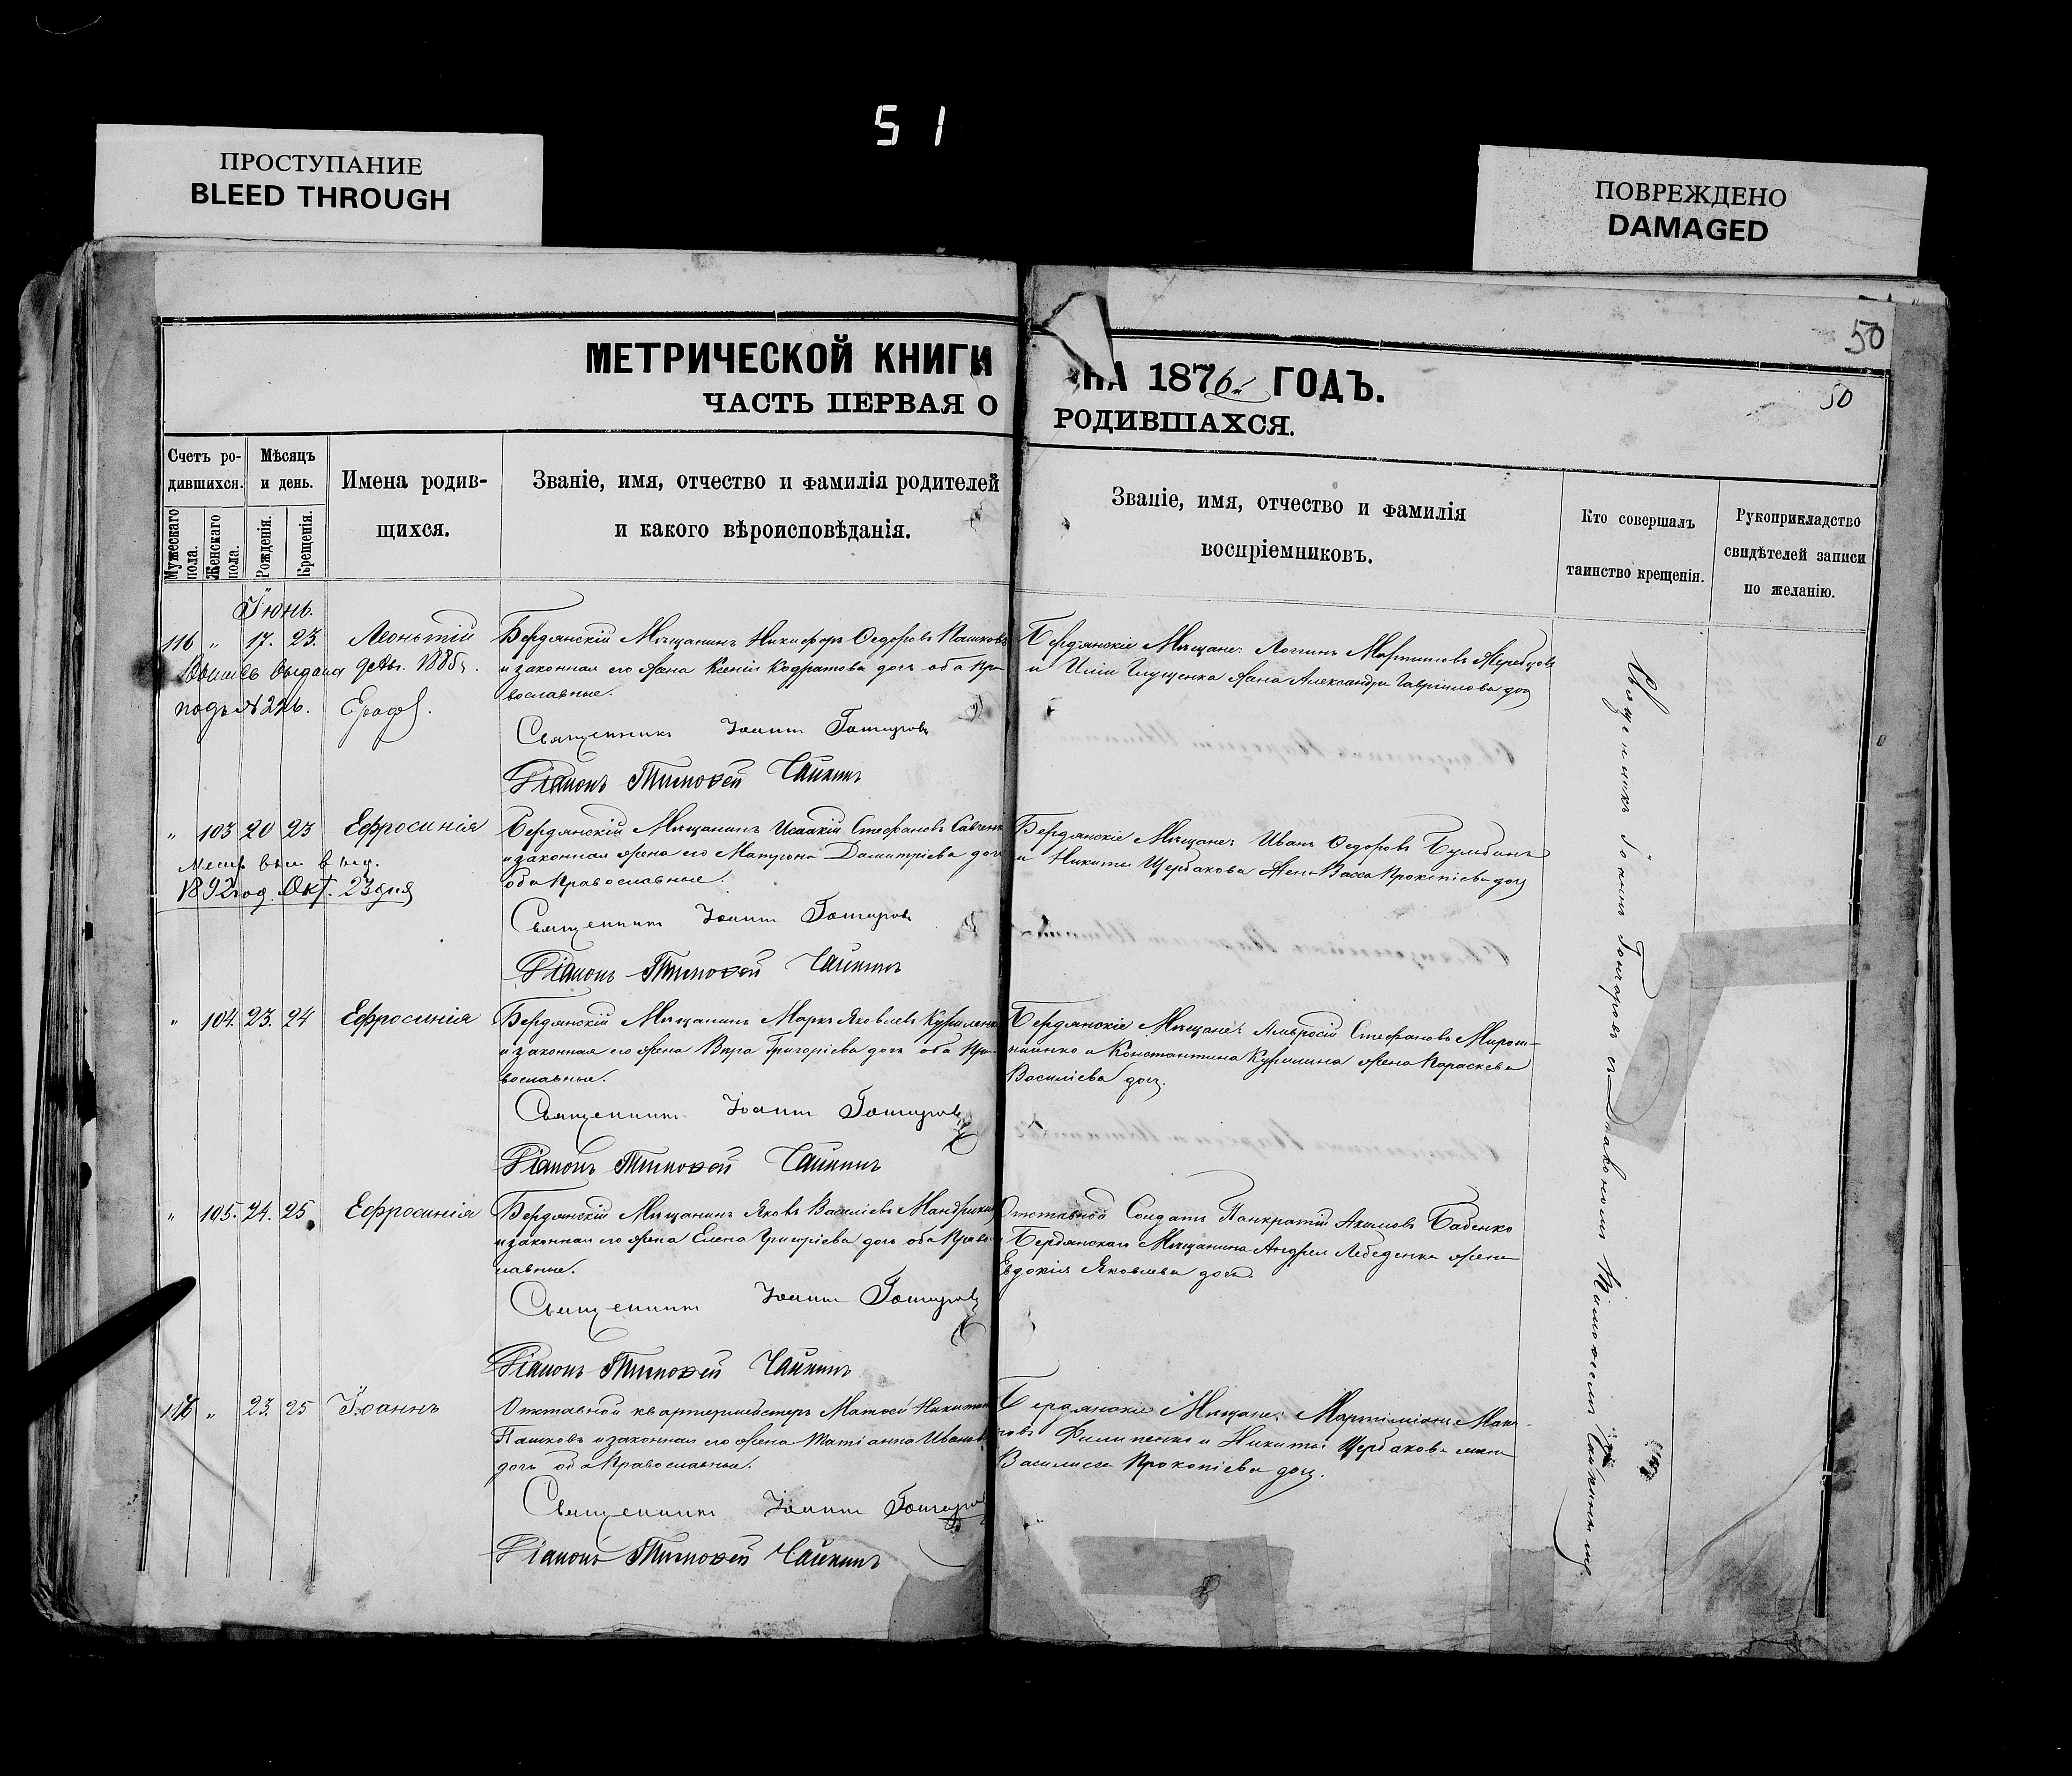 51
ПРОСТУПАНИЕ
BLEED THROUGH
ПОВРЕЖДЕНО
DAMAGED
50
50
МЕТРИЧЕСКОЙ КНИГИ НА 1876й ГОДЪ.
ЧАСТЬ ПЕРВАЯ О РОДИВШАХСЯ.
Счетъ ро-
дившихся.
Мужескаго пола.
Женскаго пола.
Мѣсяцъ
и день.
Рожденія.
Крещенія.
Имена родив-
щихся.
Званіе, имя, отчество и фамилія родителей
и какого вѣроисповѣданія.
Званіе, имя, отчество и фамилія
воспріемниковъ.
Кто совершалъ
таинство крещенія.
Рукоприкладство
свидѣтелей записи
по желанію.
Іюнь.
116 „ 17. 23. Леонтій
выдана 1885
подъ № 226.
Бердянскій Мѣщанинъ Никифоръ Ѳедоровъ Пашковъ
и законная его жена Ксенія Кодратова дочь оба пра-
вославные.
Священникъ Іоаннъ Гончаровъ
Діаконъ Тимоѳей Чайкинъ
Бердянскіе Мѣщане: Логгинъ Мартиновъ Жеребцовъ
и Иліи Глущенка жена Александра Гавріилова доч
„ 103 20 23 Ефросинія
1892 год. Окт. 23 дня
Бердянскій Мѣщанинъ Исаакій Стефановъ Савченко
и законная жена его Матрона Димитріева доч
оба Православные.
Священникъ Іоаннъ Гончаровъ
Діаконъ Тимоѳей Чайкинъ
Бердянскіе Мѣщане: Иванъ Ѳедоровъ
и Никиты Щербакова жена Васса Прокопіева доч
„ 104. 23. 24 Ефросинія
Бердянскій Мѣщанинъ Маркъ Яковлевъ Куриленко
и законная его жена Вѣра Григоріева дочь оба Пра-
вославные.
Священникъ Іоаннъ Гончаровъ
Діаконъ Тимоѳей Чайкинъ
Бердянскіе Мѣщане: Амвросій Стефановъ Мирош-
ниченко и Константина Курилина жена Параскева
Василіева доч.
„ 105. 24. 25. Ефросинія
Бердянскій Мѣщанинъ Яковъ Василіевъ Мандрыкинъ
и законная его жена Елена Григоріева дочь оба Право-
славные.
Священникъ Іоаннъ Гончаровъ
Діаконъ Тимоѳей Чайкинъ
Отставной Солдатъ Панкратій Акимовъ Бабенко
Бердянскаго Мѣщанина Андрея Лебеденка жена
Евдокія Яковлева дочь.
„ 23. 25 Іоаннъ
Отставной квартирмейстеръ Матвей Никитинъ
Пашковъ и законная его жена Татіанна Иванова
дочь оба Православные.
Священникъ Іоаннъ Гончаровъ
Діаконъ Тимоѳей Чайкинъ
Бердянскіе Мѣщане: Мартиміанъ
Филипенко и Никиты Щербакова жена
Василиса Прокопіева доч.
Священникъ Іоаннъ Гончаровъ съ Діакономъ Тимоѳеемъ Чайкинымъ